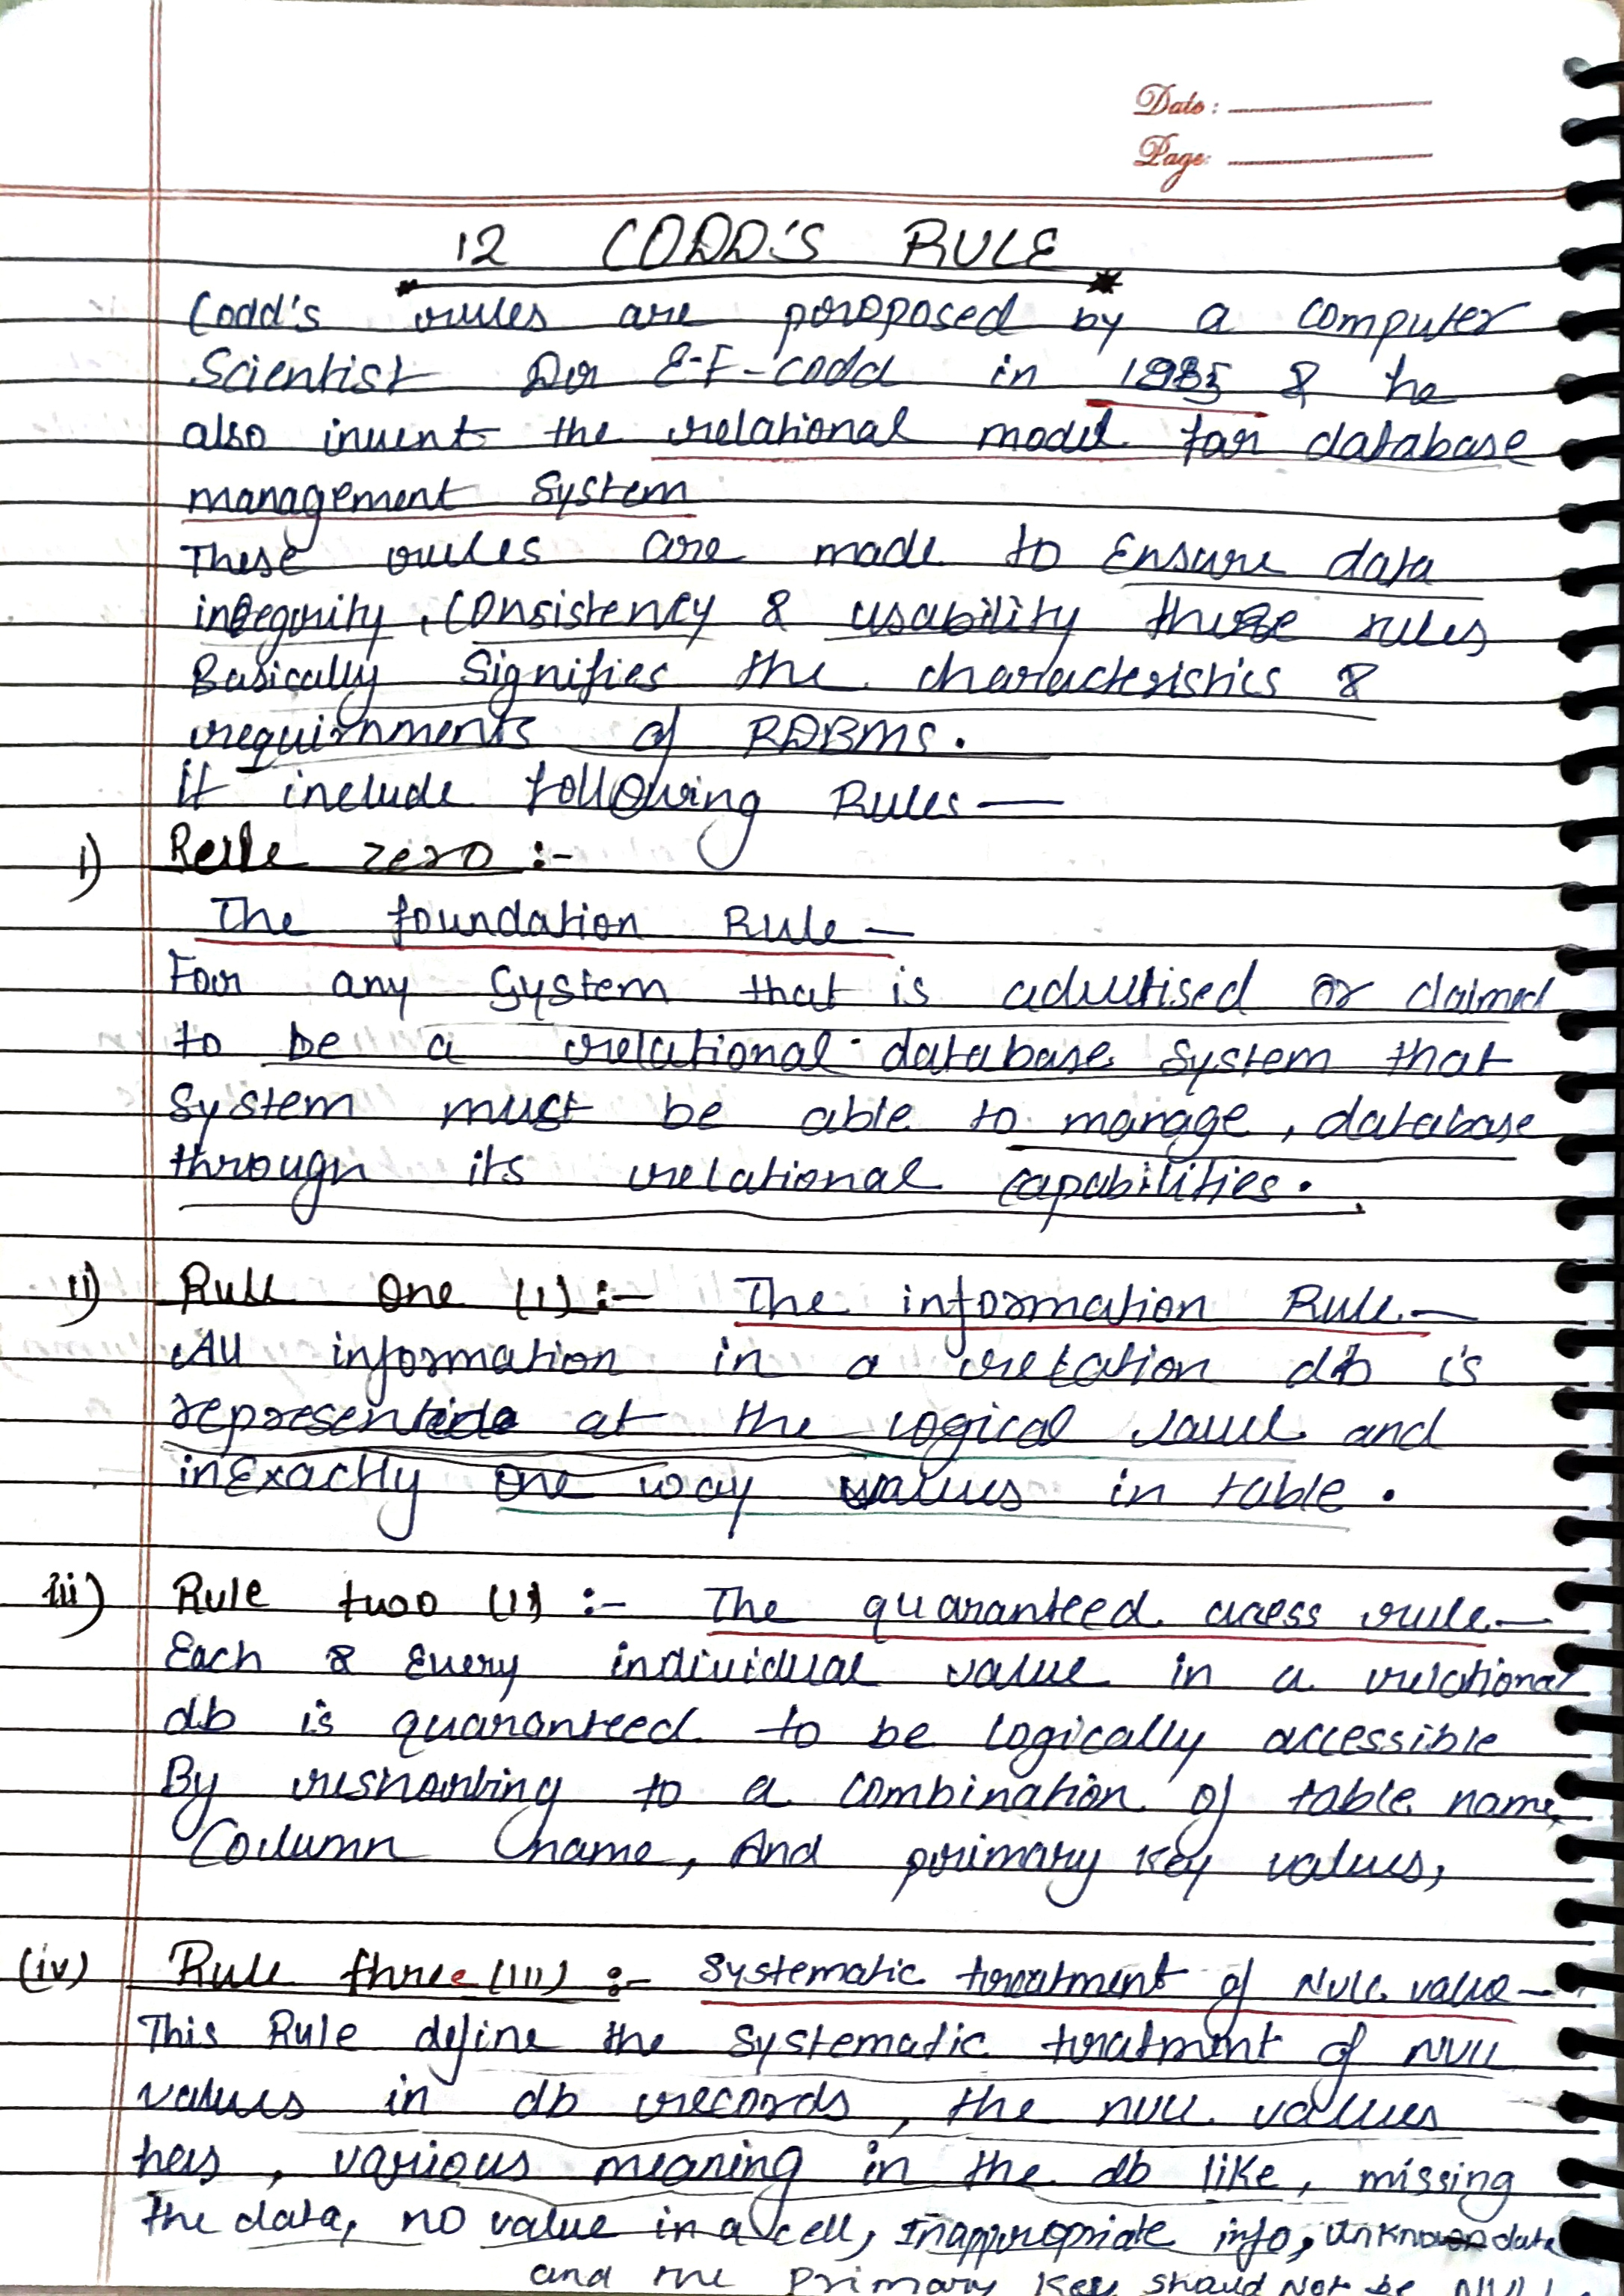 Date :
Page:
12 CODD'S RULE
Codd's rules are proposed by a computer
Scientist Dr E-F-codd in 1985 & he
also invent the relational model for database
management System
These rules are made to Ensure data
integrity, Consistency & usability these rules
Basically Signifies the characteristics &
requirnments of RDBMS.
It include following Rules —
i) Rule zero :-
The foundation Rule —
For any System that is advertised or claimed
to be a relational database System that
System must be able to manage, database
through its relational capabilities.
ii) Rule One (1) :- The information Rule —
All information in a relation db is
represented at the logical level and
in Exactly one way values in table.
iii) Rule two (II) :- The guaranteed access rule —
Each & Every individual value in a relational
db is guaranteed to be logically accessible
By resorting to a combination of table name,
Column name, And primary key values,
(iv) Rule three (III) :- Systematic treatment of Null value —
This Rule define the systematic tratment of NULL
values in db records, the null values
has, various meaning in the db like, missing
the data, no value in a cell, Inappropriate info, unknown date
and the primary key should Not be NULL